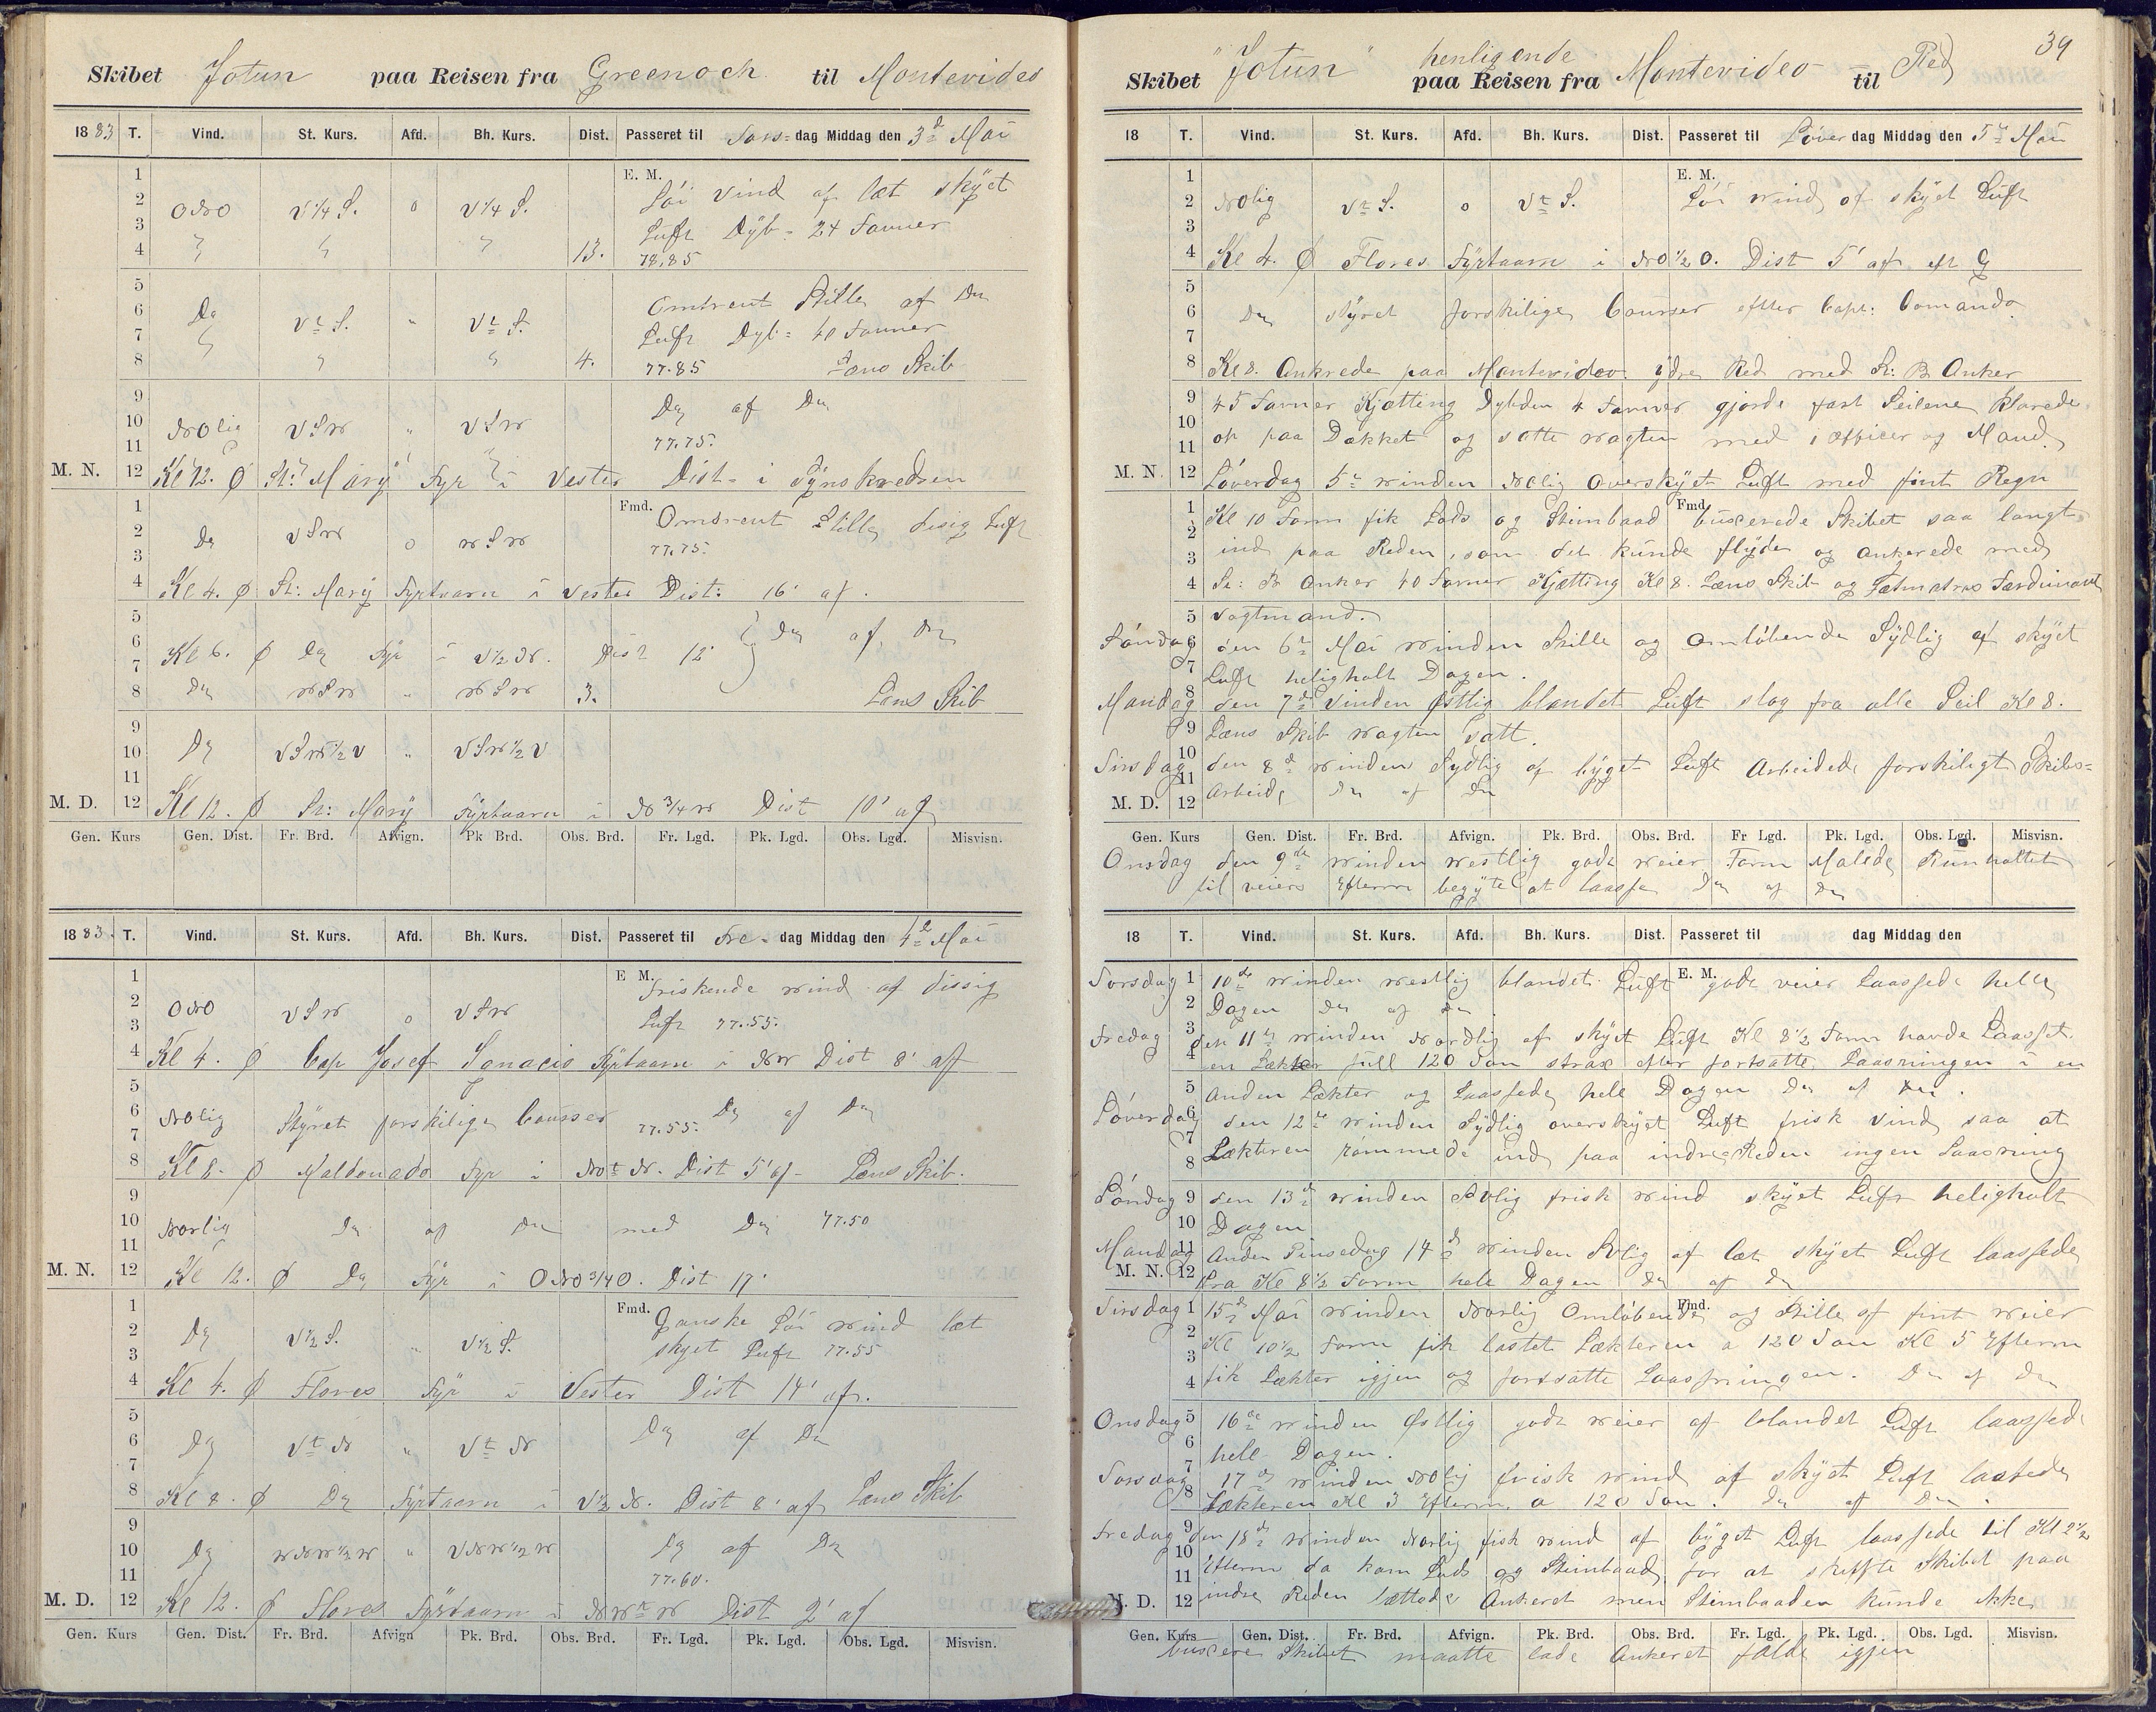 Skibet Jotun paa Reisen fra Greenock til Montevideo
1883 T. Vind. St. Kurs. Afd. Bh. Kurs. Dist. Passeret til Tors= dag Middag den 3d Mai
1 E. M.
2 ONO V 1/4 S. o V 1/4 S. Löi Vind af læt skyet
3 Luft Dyb= 24 Favner
4 " " " 13. 78,85
5
6 Do VtS. " VtS. Omtrent Stille af Do
7 Luft Dyb= 40 Favner
8 " " " 4. 77.85 Læns Skib
9 Do af Do
10 NOlig VSW " VSW
11 77.75.
M. N. 12 Kl 12. Ø St: Mary Fyr i Vester Dist= i Synskredsen
1 Fmd. Omtrent Stille disig Luft
2 Do VSW o WSW
3 77.75.
4 Kl 4. Ø St: Mary Fyrtaarn i Vester Dist: 16' af.
5
6 Kl 6. Ø Do Fyr i V 1/2 N. Dist 12' Do af Do
7
8 Do WSW " WSW 3. Læns Skib
9
10 Do VSW 1/2 V " VSW 1/2 V
11
M. D. 12 Kl 12. Ø St: Mary Fyrtaarn i N 3/4 W Dist 10' af
Gen. Kurs Gen. Dist. Fr. Brd. Afvign. Pk Brd. Obs. Brd. Fr. Lgd. Pk. Lgd. Obs. Lgd. Misvisn.
1883. T. Vind. St. Kurs. Afd. Bh. Kurs. Dist. Passeret til Fre= dag Middag den 4d Mai
1 E M. Friskende Wind af dissig
2 ONO VSW o VSW
3 Luft 77.55.
4 Kl 4. Ø Cap Josef Ignacio Fyrtaarn i NW Dist 8' af
5
6 NOlig Styret forskilige Courser 77.55. Do af Do
7
8 Kl 8. Ø Maldonado Fyr i NOtN. Dist 5' af Læns Skib.
9
10 Norlig Do af Do med Do 77.50
11
M. N. 12 Kl 12. Ø Do Fyr i ONO 3/4 O. Dist 17'
1 Fmd. Ganske Löi Wind læt
2 Do V 1/2 S. " V 1/2 S. skyet Luft 77.55
3
4 Kl 4. Ø Flores Fyr i Vester Dist 14' af.
5
6 Do VtN " VtN Do af Do
7
8 Kl 8. Ø Do Fyrtaarn i V 1/2 N. Dist 8' af Læns Skib
9
10 Do WNW 1/2 W " VNW 1/2 W Do af Do
11 77.60.
M. D. 12 Kl 12. Ø Flores Fyrtaarn i NWtW Dist 2' af
Gen. Kurs Gen. Dist. Fr. Brd. Afvign Pk. Brd. Obs. Brd. Fr. Lgd. Pk. Lgd. Obs. Lgd. Misvisn.
39
Skibet "Jotun" henligende paa Reisen fra Montevideo til Red
18 T. Vind. St. Kurs. Afd. Bh. Kurs. Dist. Passeret til Løver dag Middag den 5te Mai
1 E. M.
2 NOlig VtS. o VtS. Löi Wind af skyet Luft
3
4 Kl 4. Ø Flores Fyrtaarn i NO 1/2 O. Dist 5' af
5
6 Do styret forskilige Courser efter Capt: Comando
7
8 Kl 8. Ankrede paa Montevideo ydre Red med St: B Anker
9 45 Favner Kjætting Dybden 4 Favner gjorde fast Seilene Klarede
10
11 op paa Dækket og satte Wagten med 1 Officer og Mand.
M. N. 12 Løverdag 5te Winden NOlig Overskyet Luft med fint Regn
1 Fmd. Kl 10 Form fik Lods og Stimbaad buxerede Skibet saa langt
2
3 ind paa Reden, som det kunde flyde og ankerede med
4 St: B Anker 40 Favner Kjætting Kl 8. Læns Skib og Ferdinand
5 Vagtmand.
Søndag 6 den 6te Mai Winden Stille og omløbende Sydlig af skyet
7 Luft heligholt Dagen.
Mandag 8 den 7de Vinden Østlig blandet Luft slog fra alle Seil Kl 8.
9 Læns Skib Wagten Satt.
Tirsdag 10 den 8de Winden Sydlig af byget Luft Arbeidede forskiligt Skibs=
11
M. D. 12 Arbeide Do af Do
Gen. Kurs Gen. Dist. Fr. Brd. Afvign. Pk. Brd. Obs. Brd. Fr Lgd. Pk. Lgd. Obs. Lgd. Misvisn.
Onsdag den 9de Winden Westlig godt Weier Form Malede
til veiers Efterm begyte at laasse Do af Do
18 T. Vind. St. Kurs. Afd. Bh. Kurs. Dist. Passeret til dag Middag den
Torsdag 1 10de Winden Westlig blandet Luft E. M. godt veier Laassede hele
2 Dagen Do af Do
Fredag 3 den 11te Winden Nordlig af skyet Luft Kl 8 1/2 Form havde Laasset
4 en Lækter full 120 Ton strax efter fortsatte Laasningen i en
5 anden Lækter og Laassede hele Dagen Do af Do.
Løverdag 6 den 12te Winden Sydlig overskyet Luft frisk Vind saa at
7
8 Lækteren römmede ind paa indre Reden ingen Laasning
Søndag 9 den 13de Winden SOlig frisk Wind skyet Luft heligholt
10 Dagen
Mandag 11 Anden Pinsedag 14de Winden SOlig af læt skyet Luft laassede
M. N. 12 fra Kl 8 1/2 Form hele Dagen Do af Do
Tirsdag 1 15de Mai Winden Norlig Omløbende Fmd. og Stille af fint Weier
2
3 Kl 10 1/2 Form fik lastet Lækteren a 120 Ton Kl 5 Efterm
4 fik Lækter igjen og fortsatte Laasningen. Do af Do
Onsdag 5 16de Winden Østlig godt Weier af blandet Luft laassede
6
7 hele Dagen.
Torsdag 17de Winden NOlig frisk Wind af skyet Luft lastede
8 Lækteren Kl 3 Efterm. a 120 Ton. Do af Do.
Fredag 9 den 18de Winden Norlig fisk Wind af byget Luft laassede til Kl 2 1/2
10
11 Efterm da kom Lods og Stimbaad for at skiffte Skibet paa
M. D. 12 indre Reden lettede Ankeret men Stimbaaden kunde ikke
Gen. Kurs Gen. Dist. Fr. Brd. Afvign. Pk. Brd. Obs. Brd. Fr. Lgd. Pk. Lgd. Obs. Lgd. Misvisn.
buxere Skibet maatte lade Ankeret falde igjen